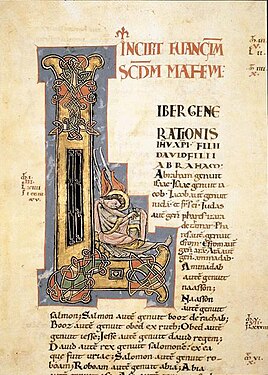 INCIPIT EUANGLM
SCDM MATHEUM
LIBER GENE
RATIONIS
IHU XPI FILII
DAVID FILII
ABRAHAM
Abraham genuit
isac. Isac genuit ia
cob. Iacob autē genuit
iudā & frēs ei. Iudas
autē genuit phares & zara
de thamar. Pha
res autē genuit
esrom. Esrom autē
genuit
aminadab
Aminadab
autē genuit
naasson.
Naasson
autē genuit
salmon; Salmon autē genuit booz de rachab;
Booz autē genuit obed ex ruth; Obed autē
genuit iesse; Iesse autē genuit david regem;
David autē rex genuit salomonē; ex ea
que fuit uriae; Salomon autē genuit ro
boam; Roboam autē genuit abia; Abia